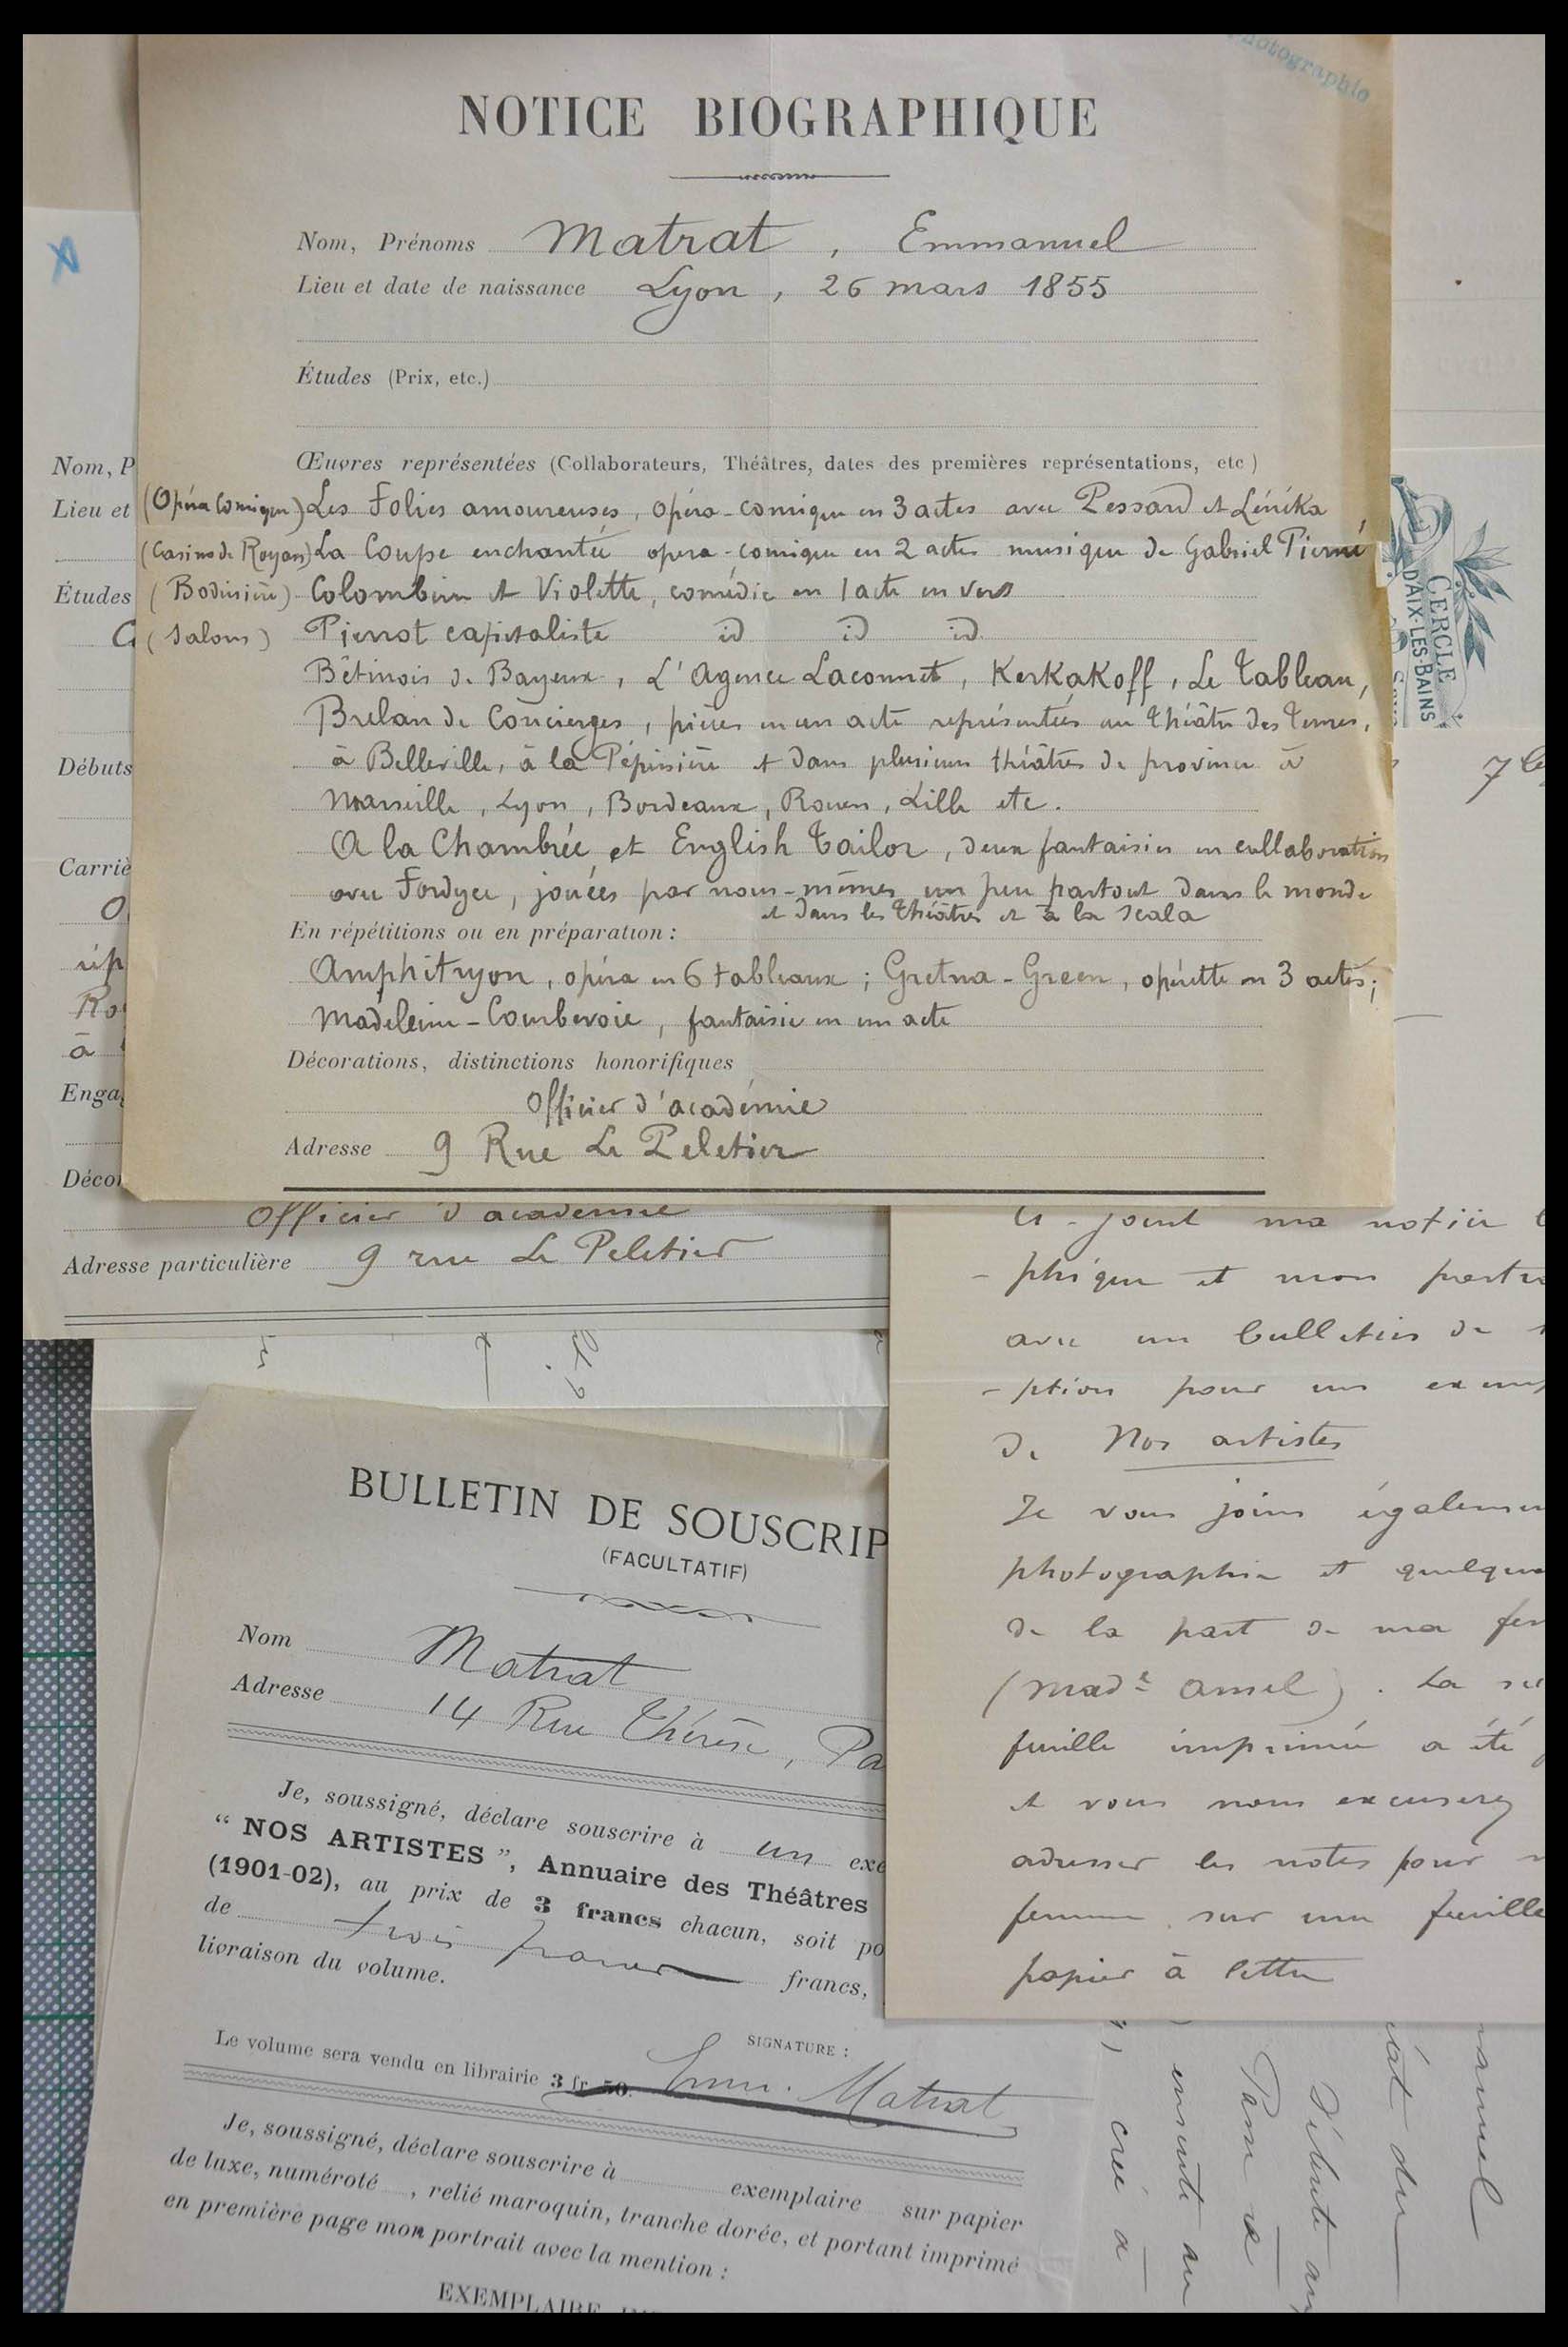 Photographie
NOTICE BIOGRAPHIQUE
Nom, Prénoms Matrat, Emmanuel
Lieu et date de naissance Lyon, 26 mars 1855
Études (Prix, etc.)
Œuvres représentées (Collaborateurs, Théâtres, dates des premières représentations, etc)
(Opéra Comique) Les Folies amoureuses, opéra-comique en 3 actes avec Pessard et Lénéka
(Casino de Royan) La Coupe enchantée opera-comique en 2 actes musique de Gabriel Pierné
(Bodinière) Colombine et Violette, comédie en 1 acte en vers
(Salons) Pierrot capitaliste id id id.
Bétinois de Bayeux, L'Agence Laconnet, Kerkakoff, Le Tableau,
Brelan de Concierges, pièces en un acte représentées au théâtre des Ternes,
à Belleville, à la Pépinière et dans plusieurs théâtres de province à
Marseille, Lyon, Bordeaux, Rouen, Lille etc.
A la Chambrée et English Tailor, deux fantaisies en collaboration
avec Fordyce, jouées par nous-mêmes un peu partout dans le monde
et dans les théâtres et à la Scala
En répétitions ou en préparation :
Amphitryon, opéra en 6 tableaux ; Gretna-Green, opérette en 3 actes ;
Madeleine-Courbevoie, fantaisie en un acte
Décorations, distinctions honorifiques
Officier d'académie
Adresse 9 Rue Le Peletier
Nom, P
Lieu et
Études
C
Débuts
Carriè
O
rép
Ro
à
Enga
Décor
Officier d'academie
Adresse particulière 9 rue Le Peletier
CERCLE
D'AIX-LES-BAINS
7
Ci-joint ma notice
-phique et mon portr
avec un bulletin de
-ption pour un exem
de Nos artistes
Je vous joins égalemen
photographie et quelque
de la part de ma fem
(Made Amel). La
feuille imprimée a été
et vous nous excuserez
adresser les notes pour
femme sur une feuille
papier à lettre
BULLETIN DE SOUSCRIP
(FACULTATIF)
Nom Matrat
Adresse 14 Rue Thérèse, Pa
Je, soussigné, déclare souscrire à un exe
“ NOS ARTISTES ”, Annuaire des Théâtres
(1901-02), au prix de 3 francs chacun, soit po
de trois francs francs,
livraison du volume.
SIGNATURE :
Le volume sera vendu en librairie 3 fr. 50.
Emm. Matrat
Je, soussigné, déclare souscrire à exemplaire sur papier
de luxe, numéroté , relié maroquin, tranche dorée, et portant imprimé
en première page mon portrait avec la mention :
EXEMPLAIRE
anuel
état du
Débute au
ensuite au
créé à